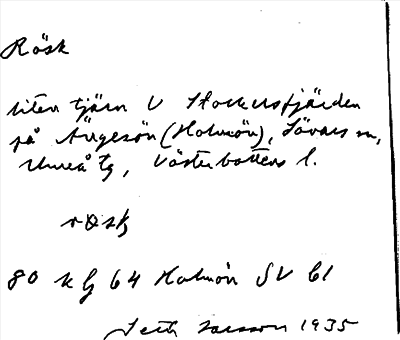 Rösk
liten tjärn V Storersfjärden
på Ängesön (Holmön), Sävars sn,
Umeå tg, Västerbottens l.
røsk
80 k G 64 Holmön SV b1
Larsson 1935